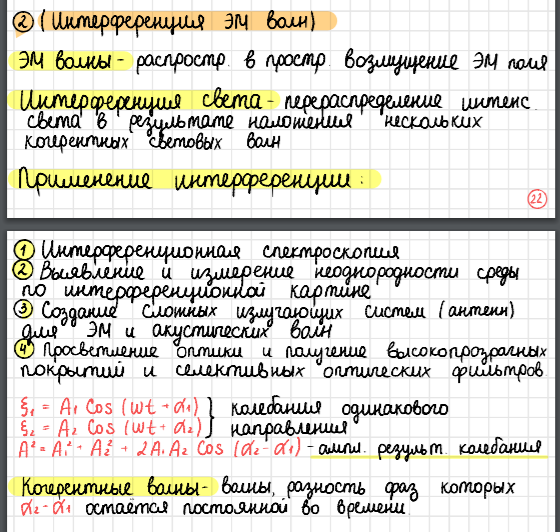 ② (Интерференция ЭМ волн)
ЭМ волны - распростр. в простр. возмущение ЭМ поля
Интерференция света - перераспределение интенс.
света в результате наложения нескольких
когерентных световых волн
Применение интерференции:
22
① Интерференционная спектроскопия
② Выявление и измерение неоднородности среды
по интерференционной картине
③ Создание сложных излучающих систем (антенн)
для ЭМ и акустических волн
④ Просветление оптики и получение высокопрозрачных
покрытий и селективных оптических фильтров.
ξ₁ = A₁ Cos (ωt + α₁) } колебания одинакового
ξ₂ = A₂ Cos (ωt + α₂) } направления
A² = A₁² + A₂² + 2A₁A₂ Cos (α₂ - α₁) - ампл. результ. колебания
Когерентные волны - волны, разность фаз которых
α₂ - α₁ остаётся постоянной во времени.